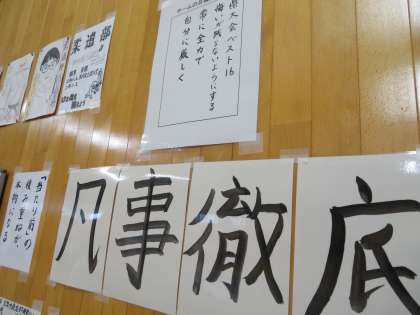 チームの目標
県大会ベスト16
悔いが残らないようにする
常に全力で
自分に厳しく
柔道部
凡事徹底
「当たり前の
積み重ねが、
本物になる